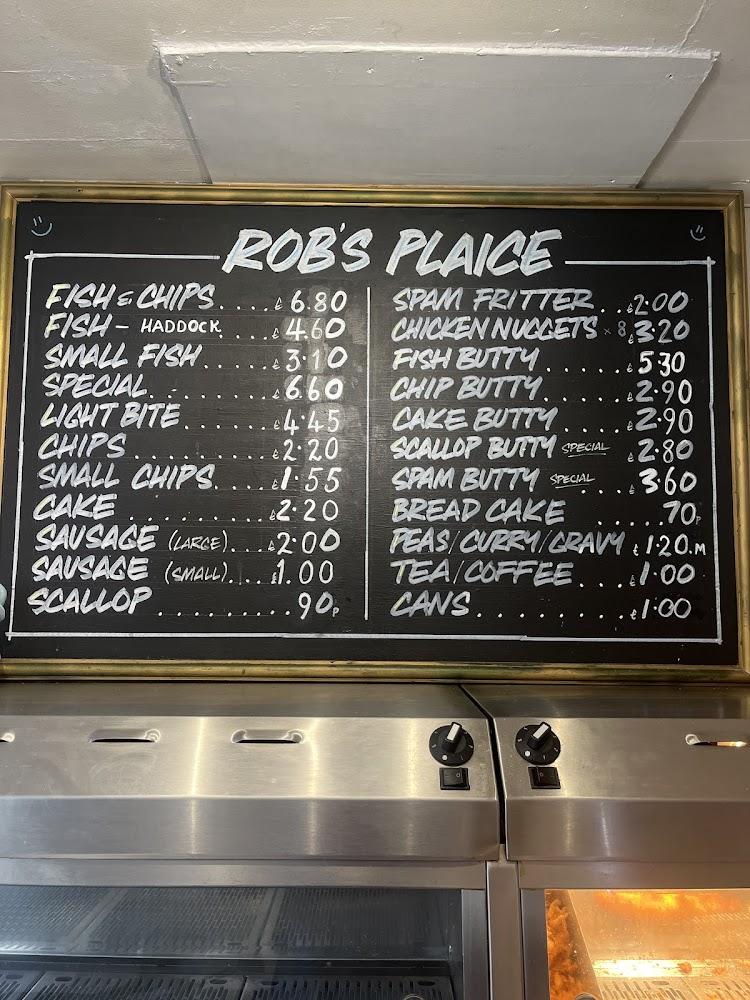 ROB'S PLAICE
FISH & CHIPS....£6.80
FISH - HADDOCK....£4.60
SMALL FISH......£3.10
SPECIAL..........£6.60
LIGHT BITE.......£4.45
CHIPS...........£2.20
SMALL CHIPS.....£1.55
CAKE............£2.20
SAUSAGE (LARGE)....£2.00
SAUSAGE (SMALL)....£1.00
SCALLOP..........90P
SPAM FRITTER..£2.00
CHICKEN NUGGETS × 8 £3.20
FISH BUTTY......£5.30
CHIP BUTTY......£2.90
CAKE BUTTY......£2.90
SCALLOP BUTTY SPECIAL £2.80
SPAM BUTTY SPECIAL....£3.60
BREAD CAKE .....70P
PEAS/CURRY/GRAVY £1.20.M
TEA/COFFEE....£1.00
CANS.........£1.00